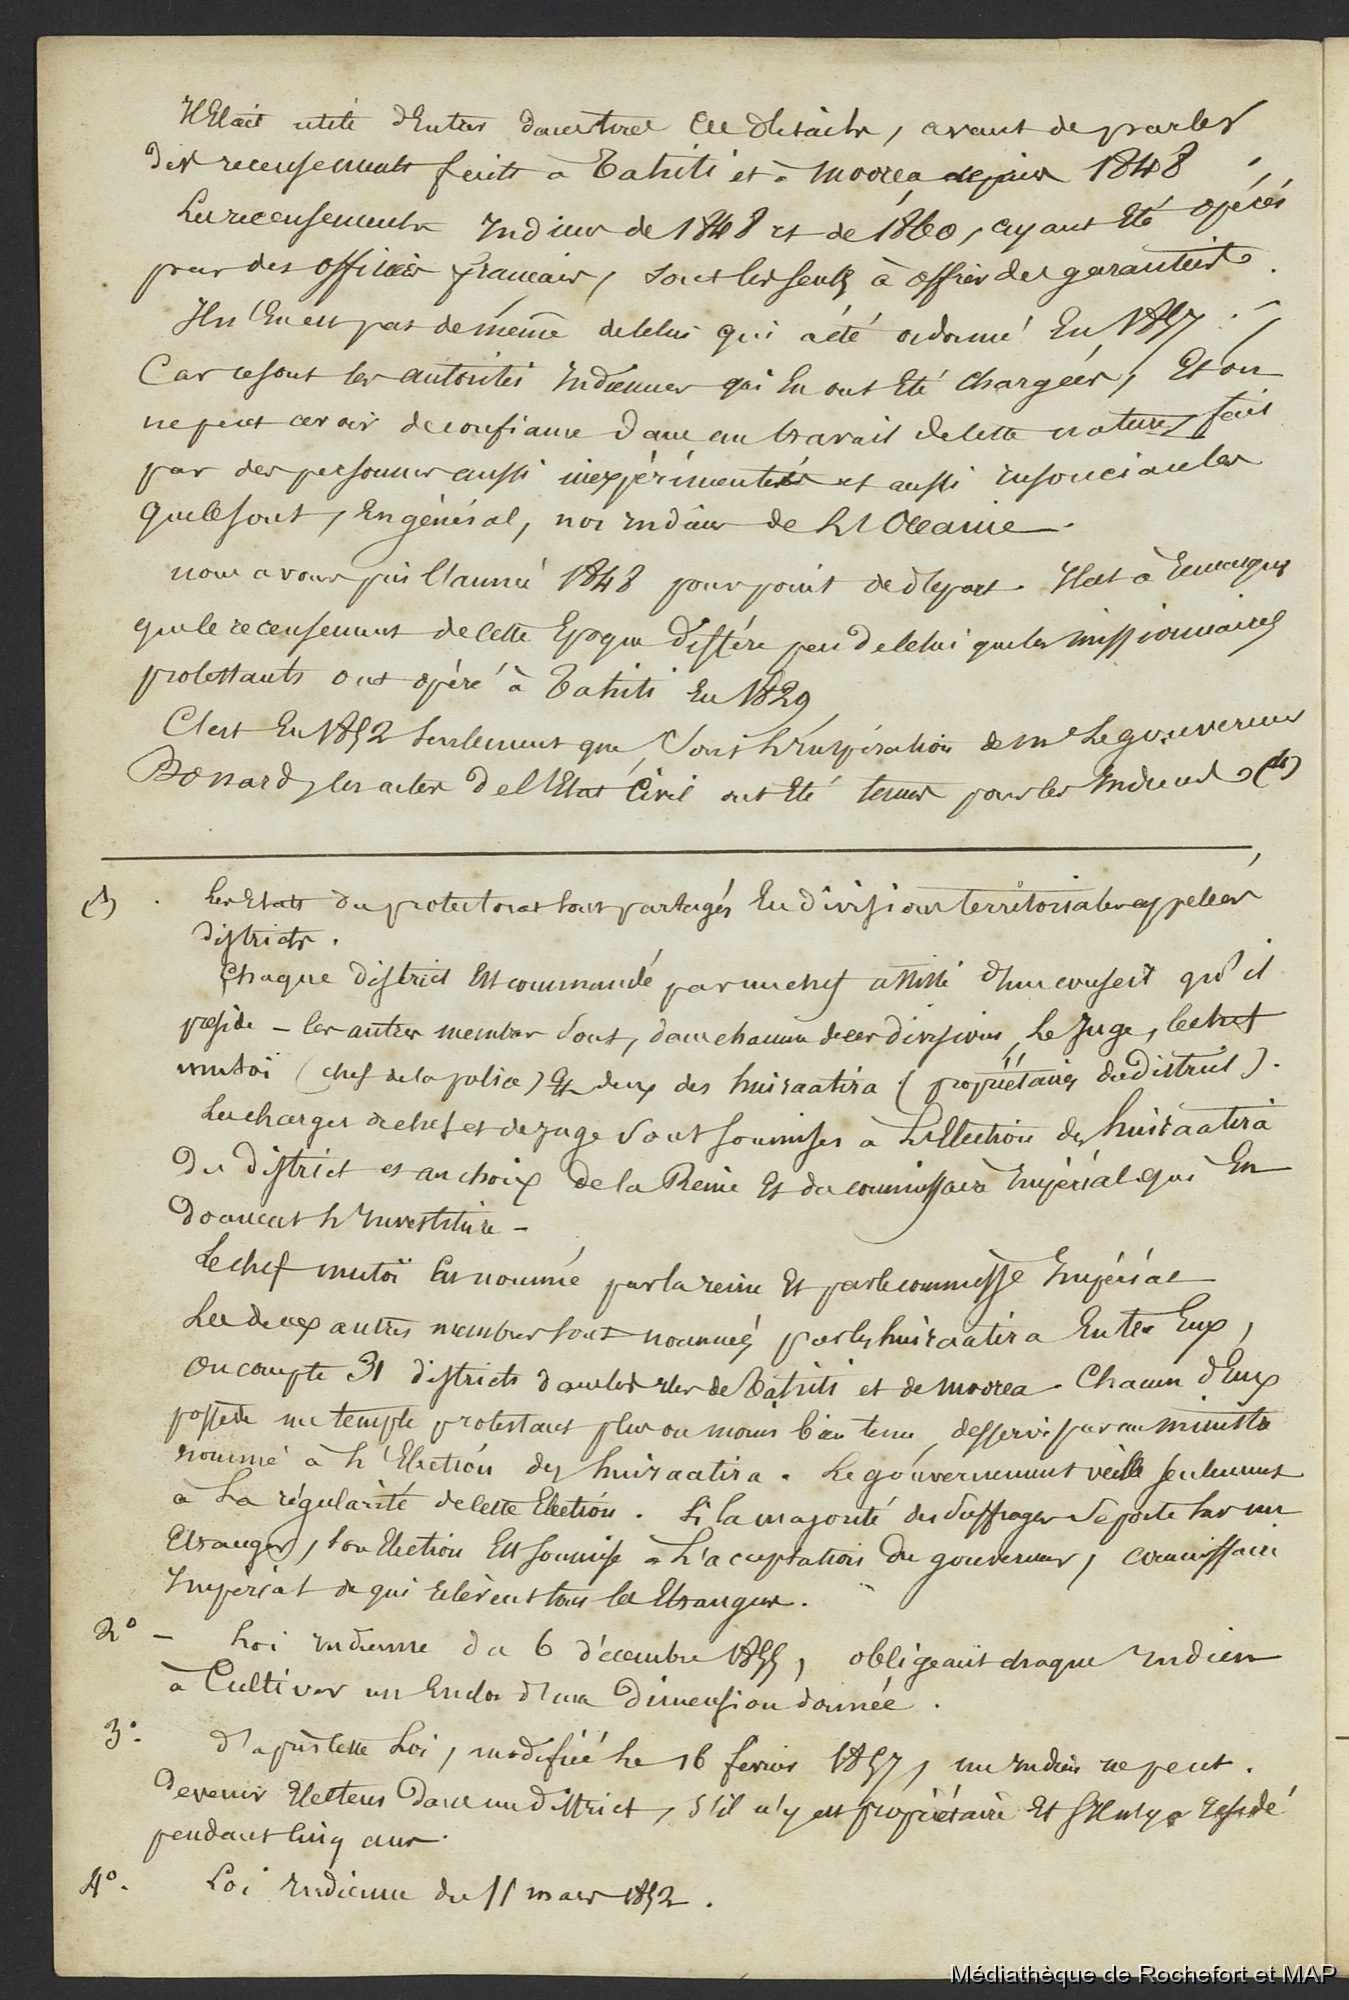 Il Etait utile d'Entrer dans tous ces détails, avant de parler
des recensements faits à Tahiti et à Moorea depuis 1848,
Les recensements Indiens de 1848 et de 1860, ayant Eté opérés
par des officiers français, sont les seuls à offrir des garanties.
Il n'En est pas de même de celui qui a été ordonné En 1857.
Car ce sont les autorités Indiennes qui En ont Eté chargées, Et on
ne peut avoir de confiance dans un travail de cette nature, fait
par des personnes aussi inexpérimentées et aussi insouciantes
que le sont, En général, nos indiens de L'Océanie.
nous avons pris l'année 1848 pour point de départ. Il est à Remarquer
que le recensement de cette Epoque diffère peu de celui que les missionnaires
protestants ont opéré à Tahiti En 1829
C'est En 1852 seulement que, sous L'Inspiration de Mr Le gouverneur
Bonard, les actes de l'Etat Civil ont Eté tenus pour les Indiens. (1)
(1) . Les Etats du protectorat sont partagés En divisions territoriales appelées
districts.
Chaque district Est commandé par un chef assisté d'un conseil qu'il
préside - les autres membres sont, dans chacune de ces divisions, Le Juge, le chef
mutoï (chef de la police) Et deux des huiraatira (propriétaires du district).
Les charges de chef et de juge sont soumises à L'Election des huiraatira
du district et au choix de la Reine Et du commissaire Impérial qui En
donnent L'Investiture -
Le chef mutoï Est nommé par la reine Et par le commisse Impérial
Les deux autres membres sont nommés par les huiraatira Entre Eux,
On compte 31 districts dans les iles de Tahiti et de Moorea. Chacun d'Eux
possède un temple protestant plus ou moins bien tenu, desservi par un ministre
nommé à L'Election des huiraatira. Le gouvernement veille seulement
à La régularité de cette Election. Si la majorité des suffrages se porte sur un
Etranger, son Election Est soumise à L'acceptation du gouverneur, commissaire
Impérial de qui relèvent tous les Etrangers.
2° - Loi indienne du 6 décembre 1855, obligeant chaque Indien
à Cultiver un Enclos d'une dimension donnée.
3°. d'après cette Loi, modifiée Le 16 février 1857, un indien ne peut.
devenir Electeur dans un district, s'il n'y est propriétaire Et s'Il n'y a résidé
pendant cinq ans.
4°. Loi Indienne du 11 mars 1852.
Médiathèque de Rochefort et MAP